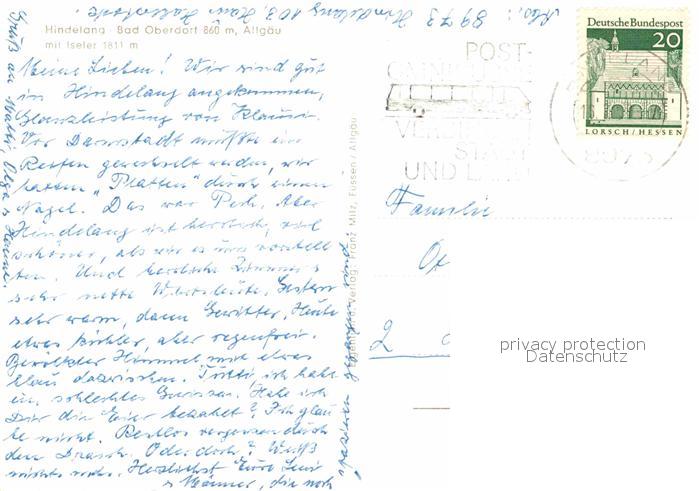 Abs.: 8973 Hindelang 103 Haus
Hindelang - Bad Oberdorf 860 m, Allgäu
mit Iseler 1811 m
Meine Lieben! Wir sind gut
in Hindelang angekommen,
Glanzleistung von Klausi.
Vor Darmstadt mußte ein
Reifen gewechselt werden, wir
hatten "Platten" durch einen
Nagel. Das war Pech. Aber
Hindelang ist herrlich, viel
schöner, als wir es uns vorstell
ten. Und herrliche Zimmer &
sehr nette Wirtsleute. Gestern
sehr warm, dann Gewitter, Heute
etwas kühler, aber regenfrei.
Bewölkter Himmel mit etwas
blau dazwischen. Tutti ich habe
ein schlechtes Gewissen. Habe ich
Dir die Eier bezahlt? Ich glau
be nicht. Restlos vergessen durch
den Drasch. Oder doch? Weiß
nichts mehr. Herzlichst Eure
& Männer, die noch
spazieren gegangen sind.
Gruß an Walter, Olga &
Eigentum u. Verlag: Franz Milz, Füssen/Allgäu
POST-
VER
STADT
UND LAND
8973
Deutsche Bundespost
20
LORSCH/HESSEN
Familie
2
privacy protection
Datenschutz